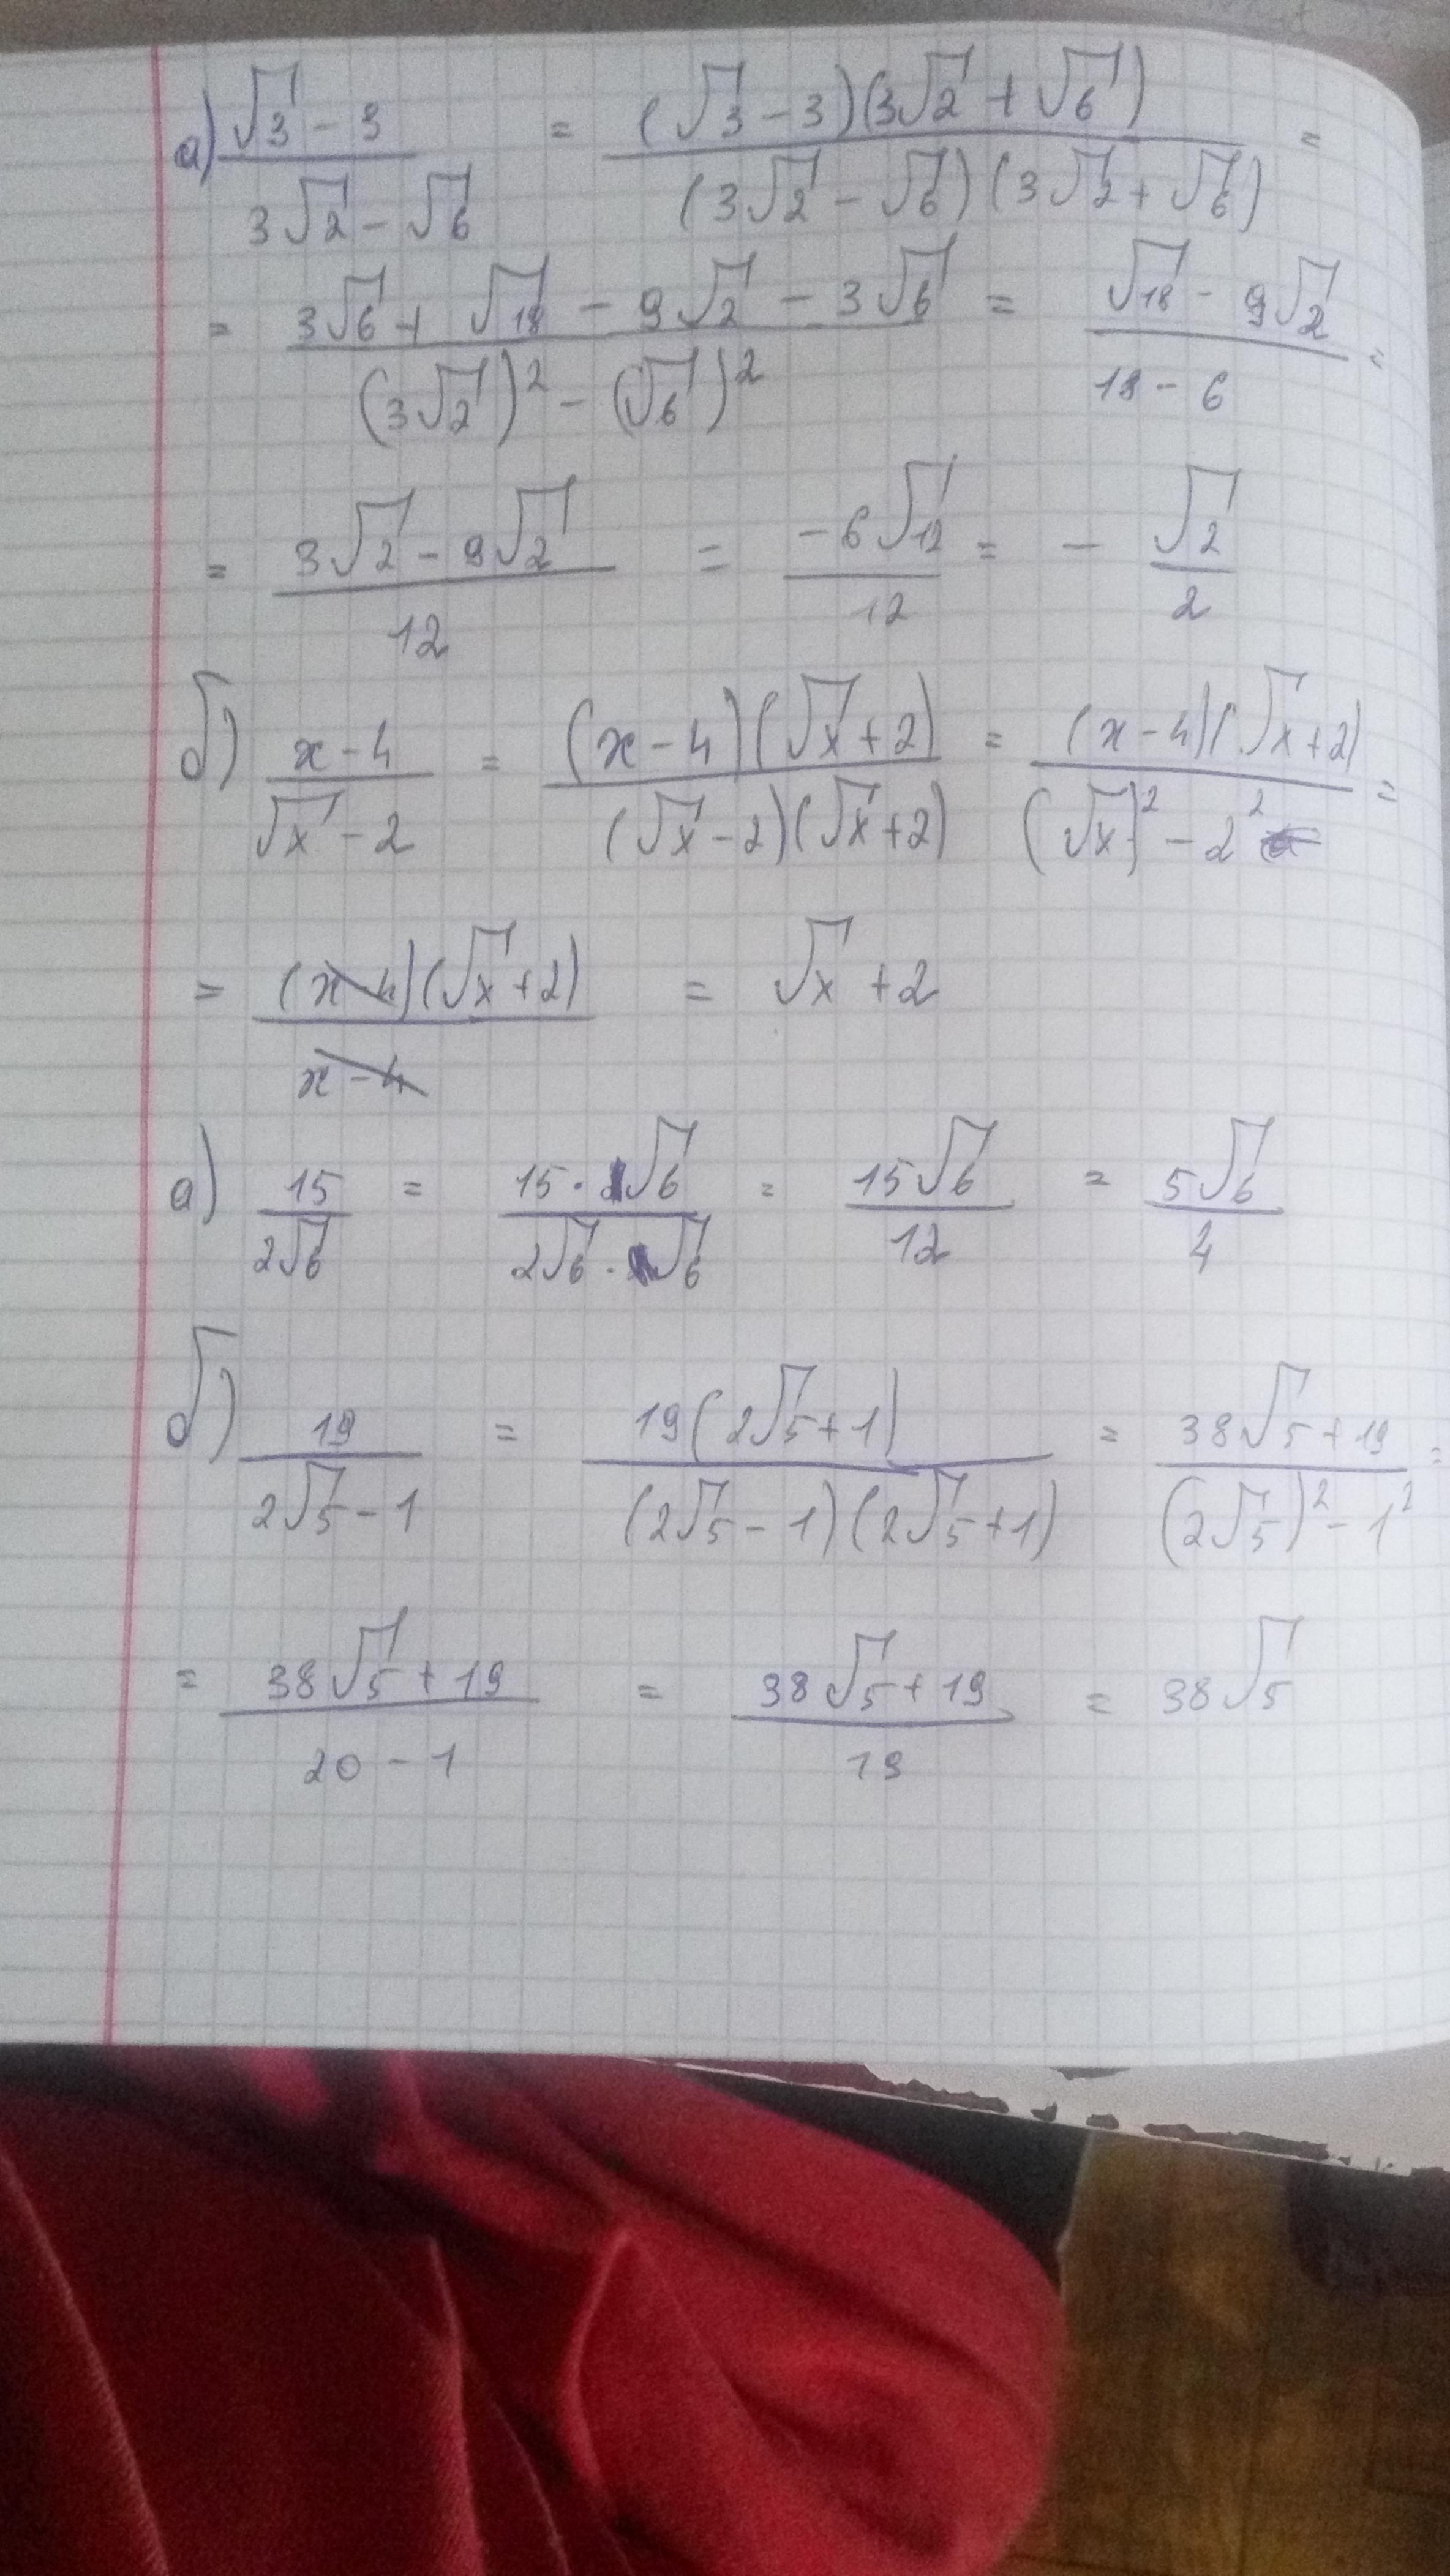 а) (√3 - 3)/(3√2 - √6) = ((√3 - 3)(3√2 + √6))/((3√2 - √6)(3√2 + √6)) =
= (3√6 + √18 - 9√2 - 3√6)/((3√2)² - (√6)²) = (√18 - 9√2)/(18 - 6) =
= (3√2 - 9√2)/12 = (-6√12)/12 = - √2/2
б) (x - 4)/(√x - 2) = ((x - 4)(√x + 2))/((√x - 2)(√x + 2)) = ((x - 4)(√x + 2))/((√x)² - 2²) =
= ((x - 4)(√x + 2))/(x - 4) = √x + 2
а) 15/(2√6) = (15 · √6)/(2√6 · √6) = (15√6)/12 = (5√6)/4
б) 19/(2√5 - 1) = (19(2√5 + 1))/((2√5 - 1)(2√5 + 1)) = (38√5 + 19)/((2√5)² - 1²) =
= (38√5 + 19)/(20 - 1) = (38√5 + 19)/19 = 38√5